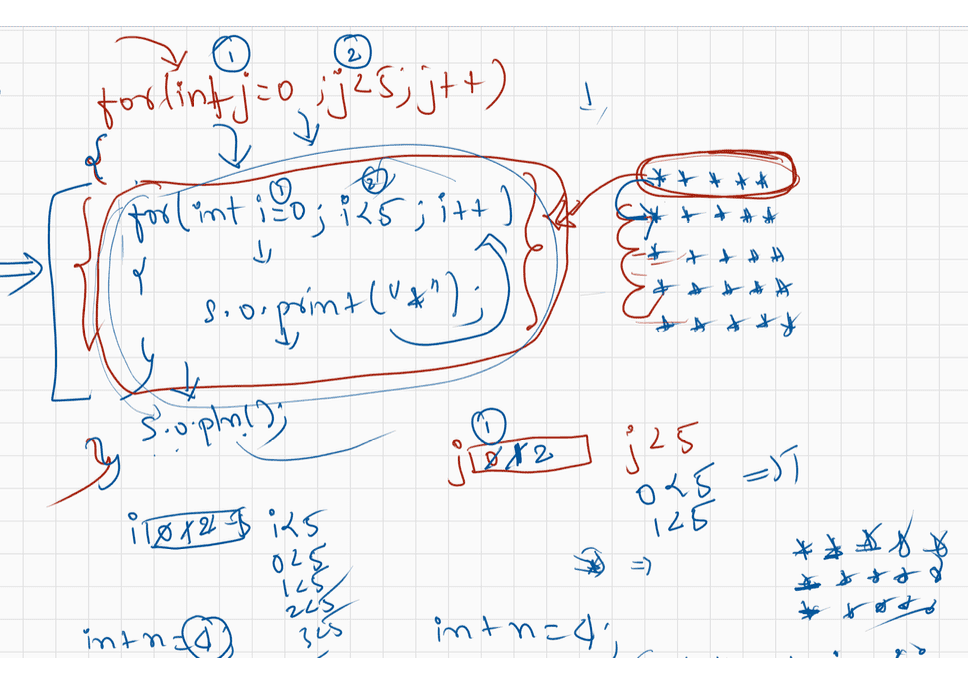 ① ②
for(int j=0 ; j<5; j++)
{
① ②
for(int i=0 ; i<5 ; i++)
{
S.o.print("*");
}
S.o.pln();
}
* * * * *
* * * * *
* * * * *
* * * * *
* * * * *
①
j 0 1 2
j<5
0<5 =>
1<5
i 0 1 2
i<5
0<5
1<5
2<5
3<5
* * * * *
* * * * *
* * * * *
int n=4
int n=4;